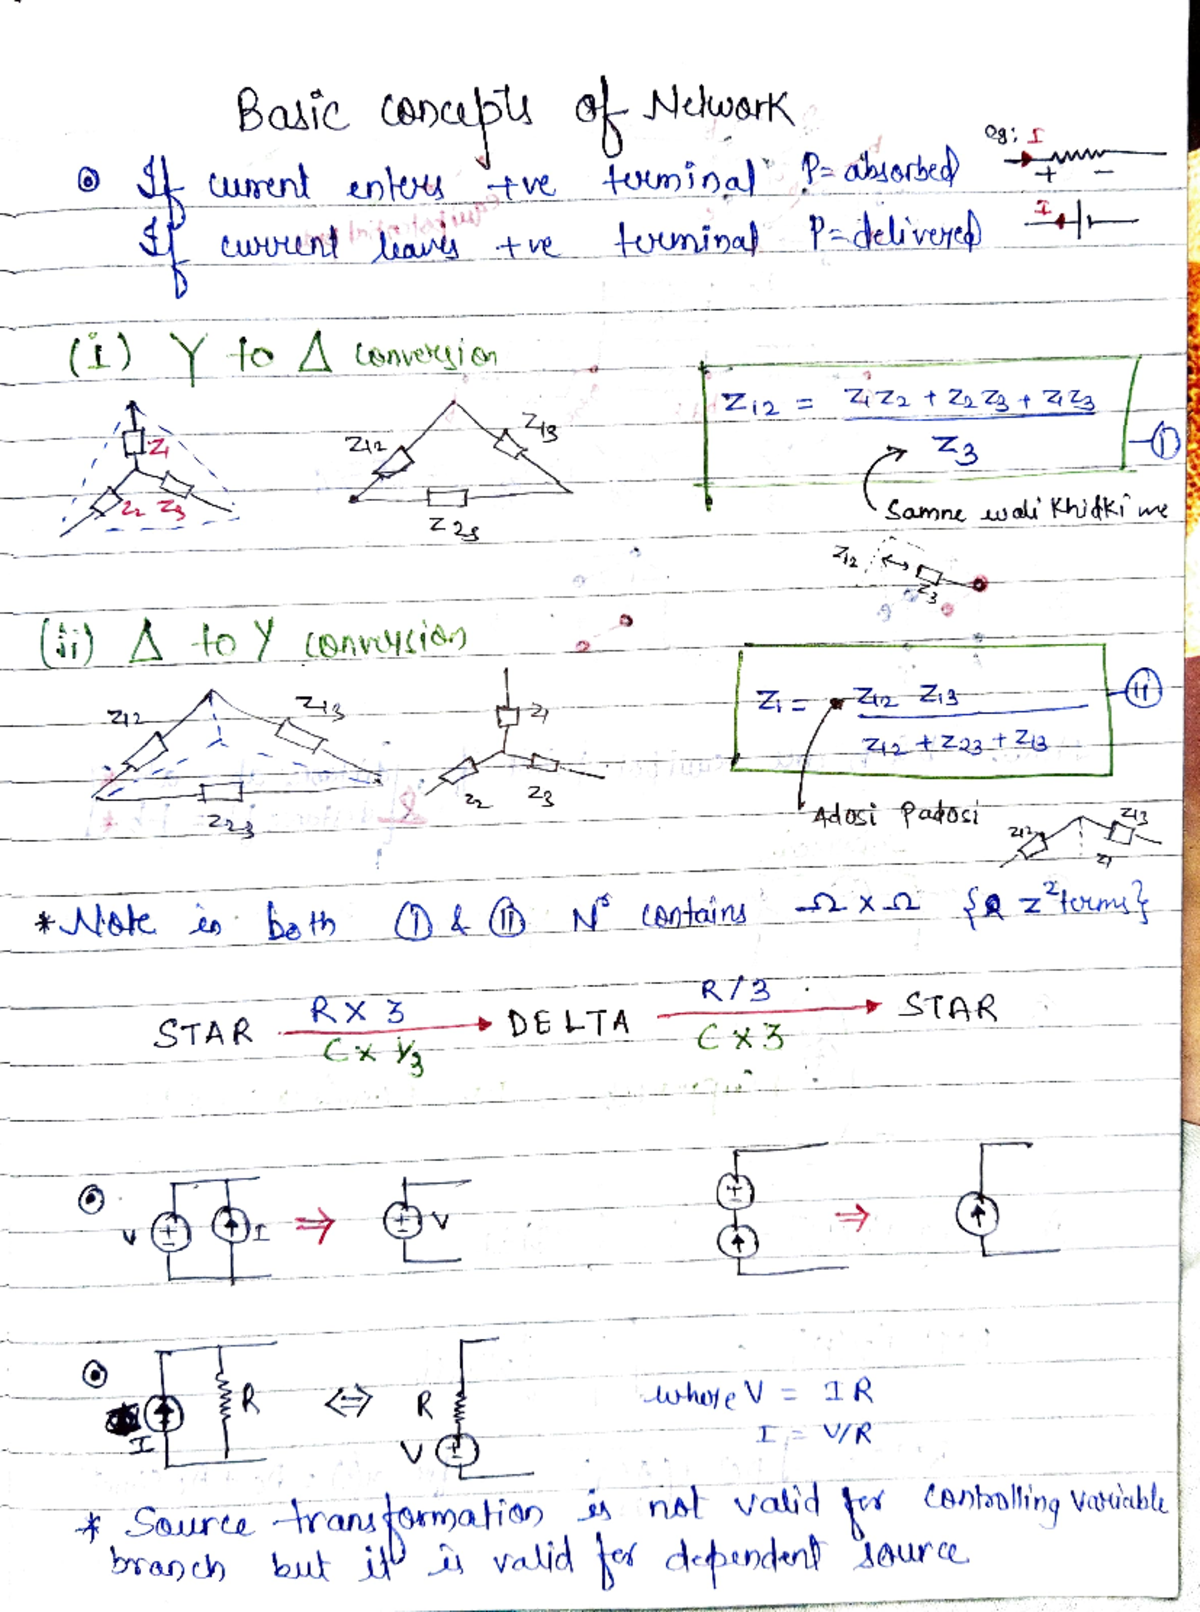 Basic concepts of Network
eg: I
+ -
⊙ If current enters +ve terminal P= absorbed
I
If current leaves +ve terminal P= delivered
(i) Y to Δ conversion
Z1
Z2 Z3
Z12 Z13
Z23
Z12 = Z1Z2 + Z2Z3 + Z1Z3
Z3
I
Samne wali Khidki me
Z12
Z3
(ii) Δ to Y conversion
Z12 Z13
Z23
Z1
Z2 Z3
Z1 = Z12 Z13
Z12 + Z23 + Z13
II
Adosi Padosi
Z12 Z13
Z1
* Note in both I & II Nʳ contains Ω x Ω {z² terms}
STAR R x 3 DELTA R/3 STAR
C x 1/3 C x 3
V + - I ⇒ + - V
+ - ⇒
I R ⇔ R
V + -
where V = IR
I = V/R
* Source transformation is not valid for controlling variable
branch but it is valid for dependent source